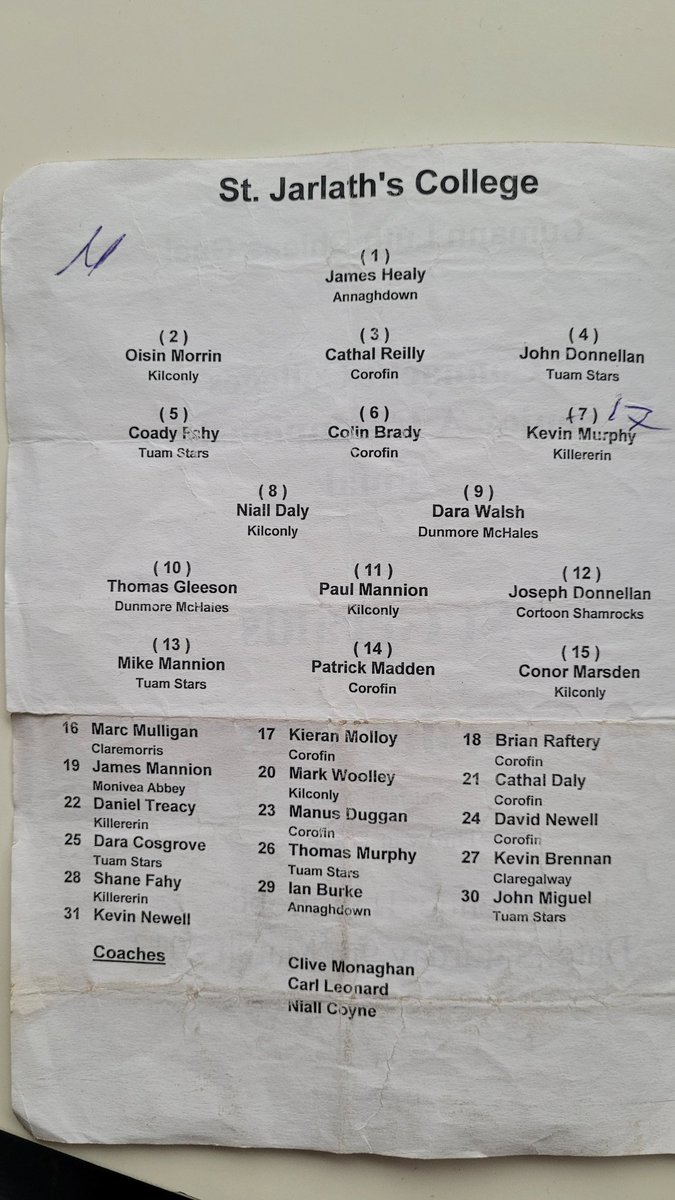 St. Jarlath's College
( 1 )
James Healy
Annaghdown
( 2 ) ( 3 ) ( 4 )
Oisin Morrin Cathal Reilly John Donnellan
Kilconly Corofin Tuam Stars
( 5 ) ( 6 ) ( 7 ) 17
Coady Fahy Colin Brady Kevin Murphy
Tuam Stars Corofin Killererin
( 8 ) ( 9 )
Niall Daly Dara Walsh
Kilconly Dunmore McHales
( 10 ) ( 11 ) ( 12 )
Thomas Gleeson Paul Mannion Joseph Donnellan
Dunmore McHales Kilconly Cortoon Shamrocks
( 13 ) ( 14 ) ( 15 )
Mike Mannion Patrick Madden Conor Marsden
Tuam Stars Corofin Kilconly
16 Marc Mulligan 17 Kieran Molloy 18 Brian Raftery
Claremorris Corofin Corofin
19 James Mannion 20 Mark Woolley 21 Cathal Daly
Monivea Abbey Kilconly Corofin
22 Daniel Treacy 23 Manus Duggan 24 David Newell
Killererin Corofin Corofin
25 Dara Cosgrove 26 Thomas Murphy 27 Kevin Brennan
Tuam Stars Tuam Stars Claregalway
28 Shane Fahy 29 Ian Burke 30 John Miguel
Killererin Annaghdown Tuam Stars
31 Kevin Newell
Coaches Clive Monaghan
Carl Leonard
Niall Coyne